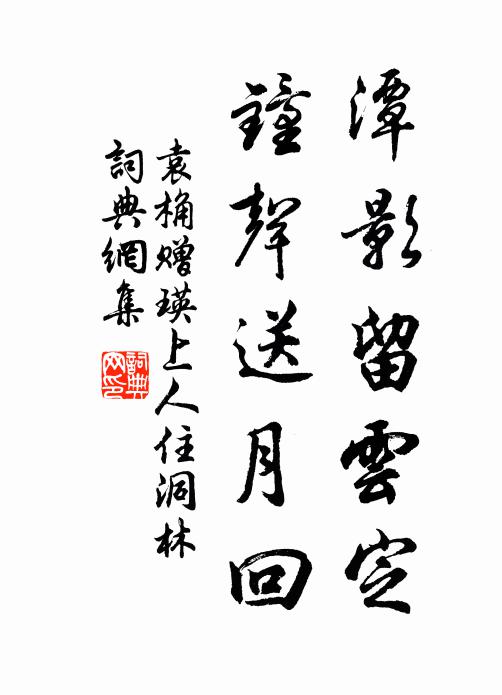 潭影留雲定
鐘聲送月回
袁桷贈瑛上人住洞林
詞典網集
詞典网印